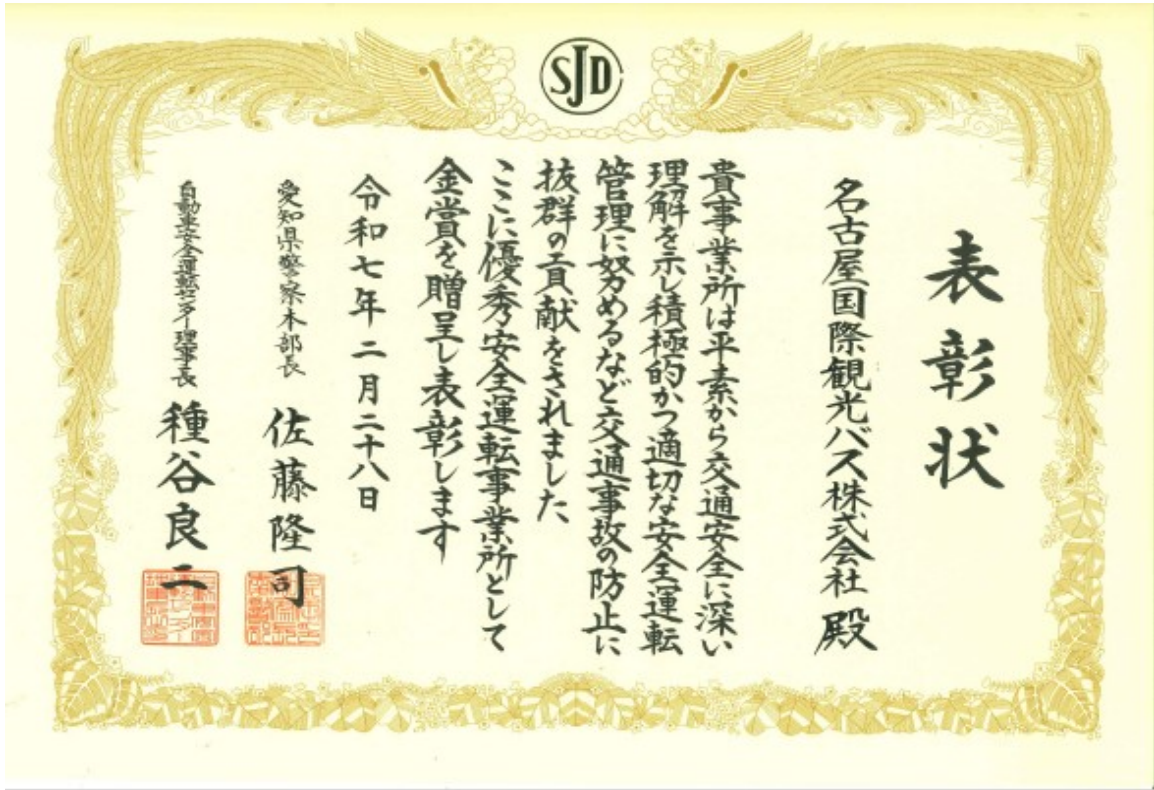 SJD
表彰状
名古屋国際観光バス株式会社 殿
貴事業所は平素から交通安全に深い
理解を示し積極的かつ適切な安全運転
管理に努めるなど交通事故の防止に
抜群の貢献をされました
ここに優秀安全運転事業所として
金賞を贈呈し表彰します
令和七年二月二十八日
愛知県警察本部長 佐藤隆司
自動車安全運転センター理事長 種谷良二